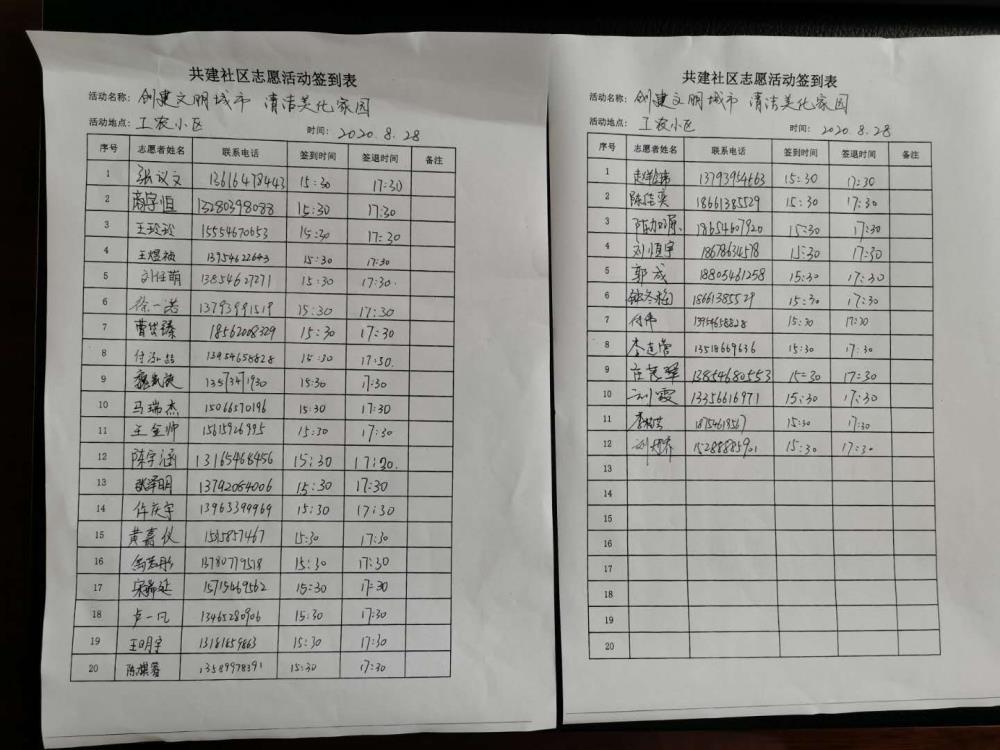 共建社区志愿活动签到表
活动名称: 创建文明城市 清洁美化家园
活动地点: 工农小区 时间: 2020.8.28
序号 志愿者姓名 联系电话 签到时间 签退时间 备注
1 张议文 13616478443 15:30 17:30
2 商宇恒 13280398088 15:30 17:30
3 王玲玲 15554670653 15:30 17:30
4 王煜祯 13954622643 15:30 17:30
5 刘任萌 13854627271 15:30 17:30.
6 徐一诺 13793991519 15:30 17:30
7 18562008329 15:30 17:30
8 13954658828 15:30 17:30.
9 15:30 17:30
10 马瑞杰 15066570196 15:30 17:30
11 王金帅 15615926995 15:30 17:30
12 陈宇涵 13165468456 15:30 17:30.
13 张泽明 13792084006 15:30 17:30
14 仵庆宇 13963399969 15:30 17:30
15 黄嘉仪 15:30 17:30
16 13780779518 15:30 17:30
17 15715469562 15:30 17:30
18 卢一凡 13465280906 15:30 17:30
19 王明宇 13181659863 15:30 17:30
20 陈麒蓉 13589978391 15:30 17:30
共建社区志愿活动签到表
活动名称: 创建文明城市 清洁美化家园
活动地点: 工农小区 时间: 2020.8.28
序号 志愿者姓名 联系电话 签到时间 签退时间 备注
1 13793954663 15:30 17:30
2 18661385529 15:30 17:30
3 18654607920 15:30 17:30
4 刘恒宇 18678634578 15:30 17:30
5 郭成 18805461258 15:30 17:30
6 18661385529 15:30 17:30
7 付伟 13954658828 15:30 17:30
8 李连营 13518669636 15:30 17:30
9 13854680553 15:30 17:30
10 刘霞 13356616971 15:30 17:30
11 15:30 17:30
12 15288885901 15:30 17:30
13
14
15
16
17
18
19
20